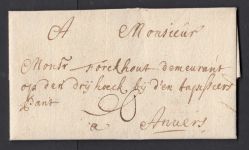 A Monsieur
Monsr Forckhout demeurant
op den drij hoeck bij d'en
Pant
a Anvers